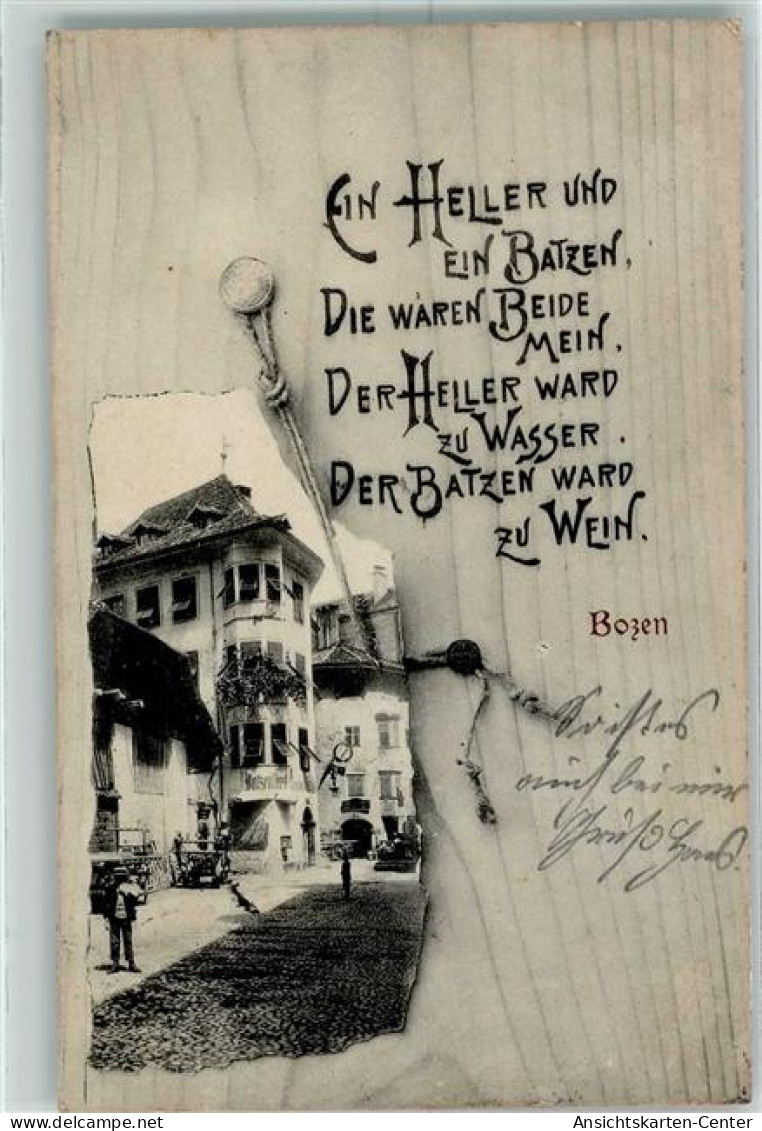 Ein Heller und
ein Batzen,
Die waren Beide
mein,
Der Heller ward
zu Wasser.
Der Batzen ward
zu Wein.
Bozen
So ist es
auch bei mir
Gruß Hans.
Ansichtskarten-Center